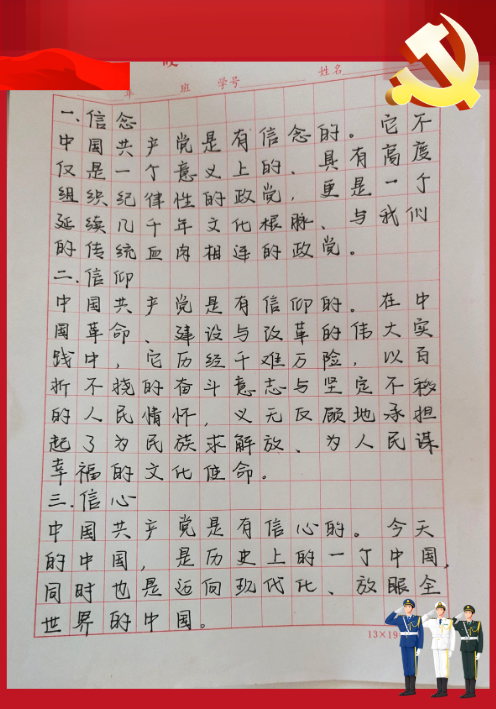 年 班 学号 姓名
一.信念
中国共产党是有信念的。它不
仅是一个意义上的、具有高度
组织纪律性的政党,更是一个
延续几千年文化根脉、与我们
的传统血肉相连的政党。
二.信仰
中国共产党是有信仰的。在中
国革命、建设与改革的伟大实
践中,它历经千难万险,以百
折不挠的奋斗意志与坚定不移
的人民情怀,义无反顾地承担
起了为民族求解放、为人民谋
幸福的文化使命。
三.信心
中国共产党是有信心的。今天
的中国,是历史上的一个中国,
同时也是迈向现代化、放眼全
世界的中国。
13×19